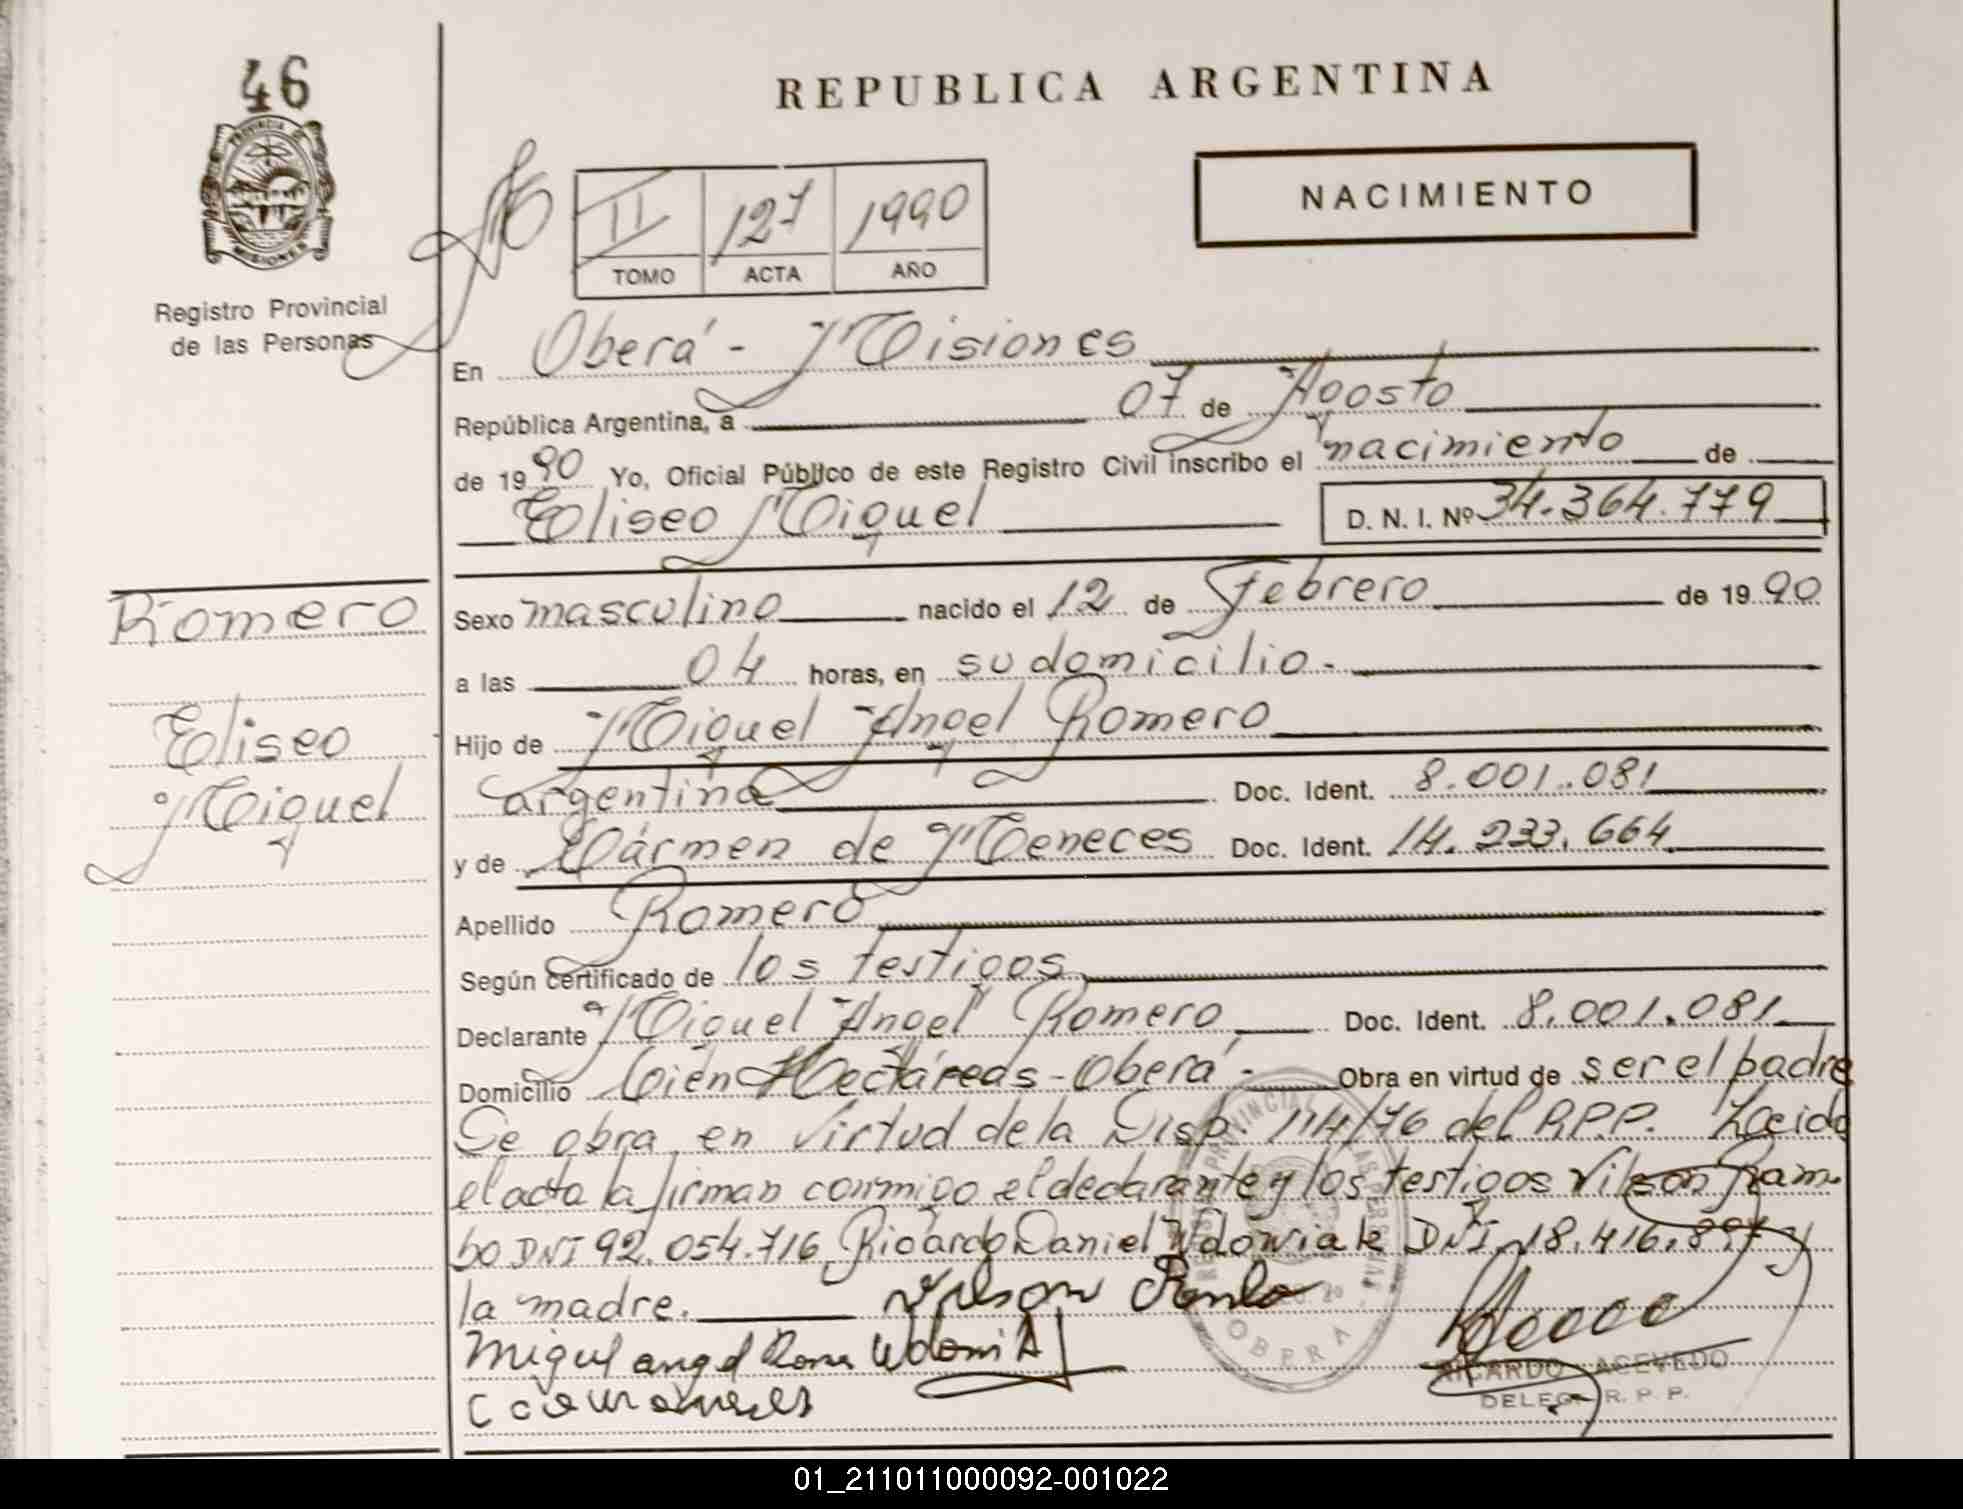 46
REPUBLICA ARGENTINA
PROVINCIA DE
MISIONES
NACIMIENTO
II 127 1990
TOMO ACTA AÑO
Registro Provincial
de las Personas
En Oberá - Misiones
República Argentina, a 07 de Agosto
de 1990 Yo, Oficial Público de este Registro Civil inscribo el nacimiento de
Eliseo Miguel D. N. I. Nº 34.364.779
Romero
Eliseo
Miguel
Sexo masculino nacido el 12 de Febrero de 1990
a las 04 horas, en su domicilio.-
Hijo de Miguel Angel Romero
argentina Doc. Ident. 8.001.081
y de Cármen de Meneces Doc. Ident. 14.233.664
Apellido Romero
Según certificado de los testigos
Declarante Miguel Angel Romero Doc. Ident. 8.001.081
Domicilio Cien Hectáreas - Oberá - Obra en virtud de ser el padre
Se obra en virtud de la Disp. 114/76 del R.P.P. Leida
el acta la firman conmigo el declarante y los testigos Vilson Ram
bo DNI 92.054.716 Ricardo Daniel Wdowiak DNI 18.416.897
la madre. Vilson Rambo
Miguel angel
RICARDO ACEVEDO
DELEG. R. P. P.
OBERA
01_211011000092-001022